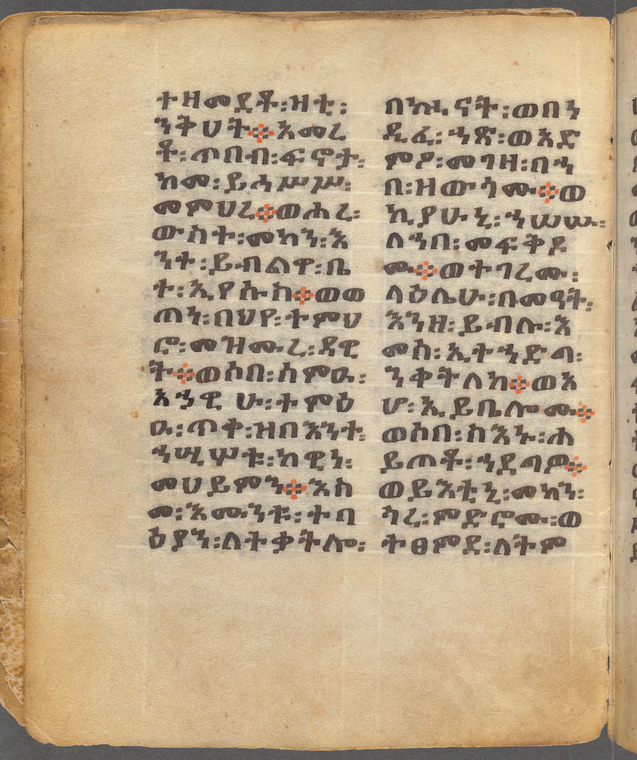 ተዘመደቶ፡ዝቲ፡
ንቅህት፨አመረ
ቶ፡ጥበብ፡ፍኖታ፡
ከመ፡ይሓሥሥ፡
መምህረ፨ወሐረ፡
ውስተ፡መካን፡እ
ንተ፡ይብልዋ፡ቤ
ተ፡ኢየኩከ፨ወወ
ጠን፡በህየ፡ተምህ
ሮ፡መዝሙረ፡ዳዊ
ት፨ወሶበ፡ሰምዑ፡
አኀዊ ሁ፡ተምዕ
ዑ፡ጥቀ፡ዝበእንተ፡
ኀሢሦቱ፡ከዊነ፡
መሀይምን፨እስ
መ፡እሙንቱ፡ተባ
ዕያን፡ለትቃትሎ፡
በኵናት፡ወበን
ዲፈ፡ኀጽ፡ወአድ
ምዖ፡መገዘ፡በኀ
በ፡ዘውሳሙ፨ወ
ኪያሁኒ፡ኀሠሡ፡
ለኀበ፡መፍቅዶ
ሙ፨ወተገረሙ፡
ላዕሌሁ፡በመዓት፡
እንዘ፡ይብሉ፡እ
መሰ፡ኢተኀድጋ፡
ንቀትለከ፨ወአ
ሆ፡ኢይቤሎሙ፨
ወሶበ፡ስእኑ፡ሐ
ይጠቶ፡ኀደግዎ፨
ወይእቲኒ፡መካን፡
ጎረ፡ምድሮሙ፡ወ
ተፀምደ፡ለትም